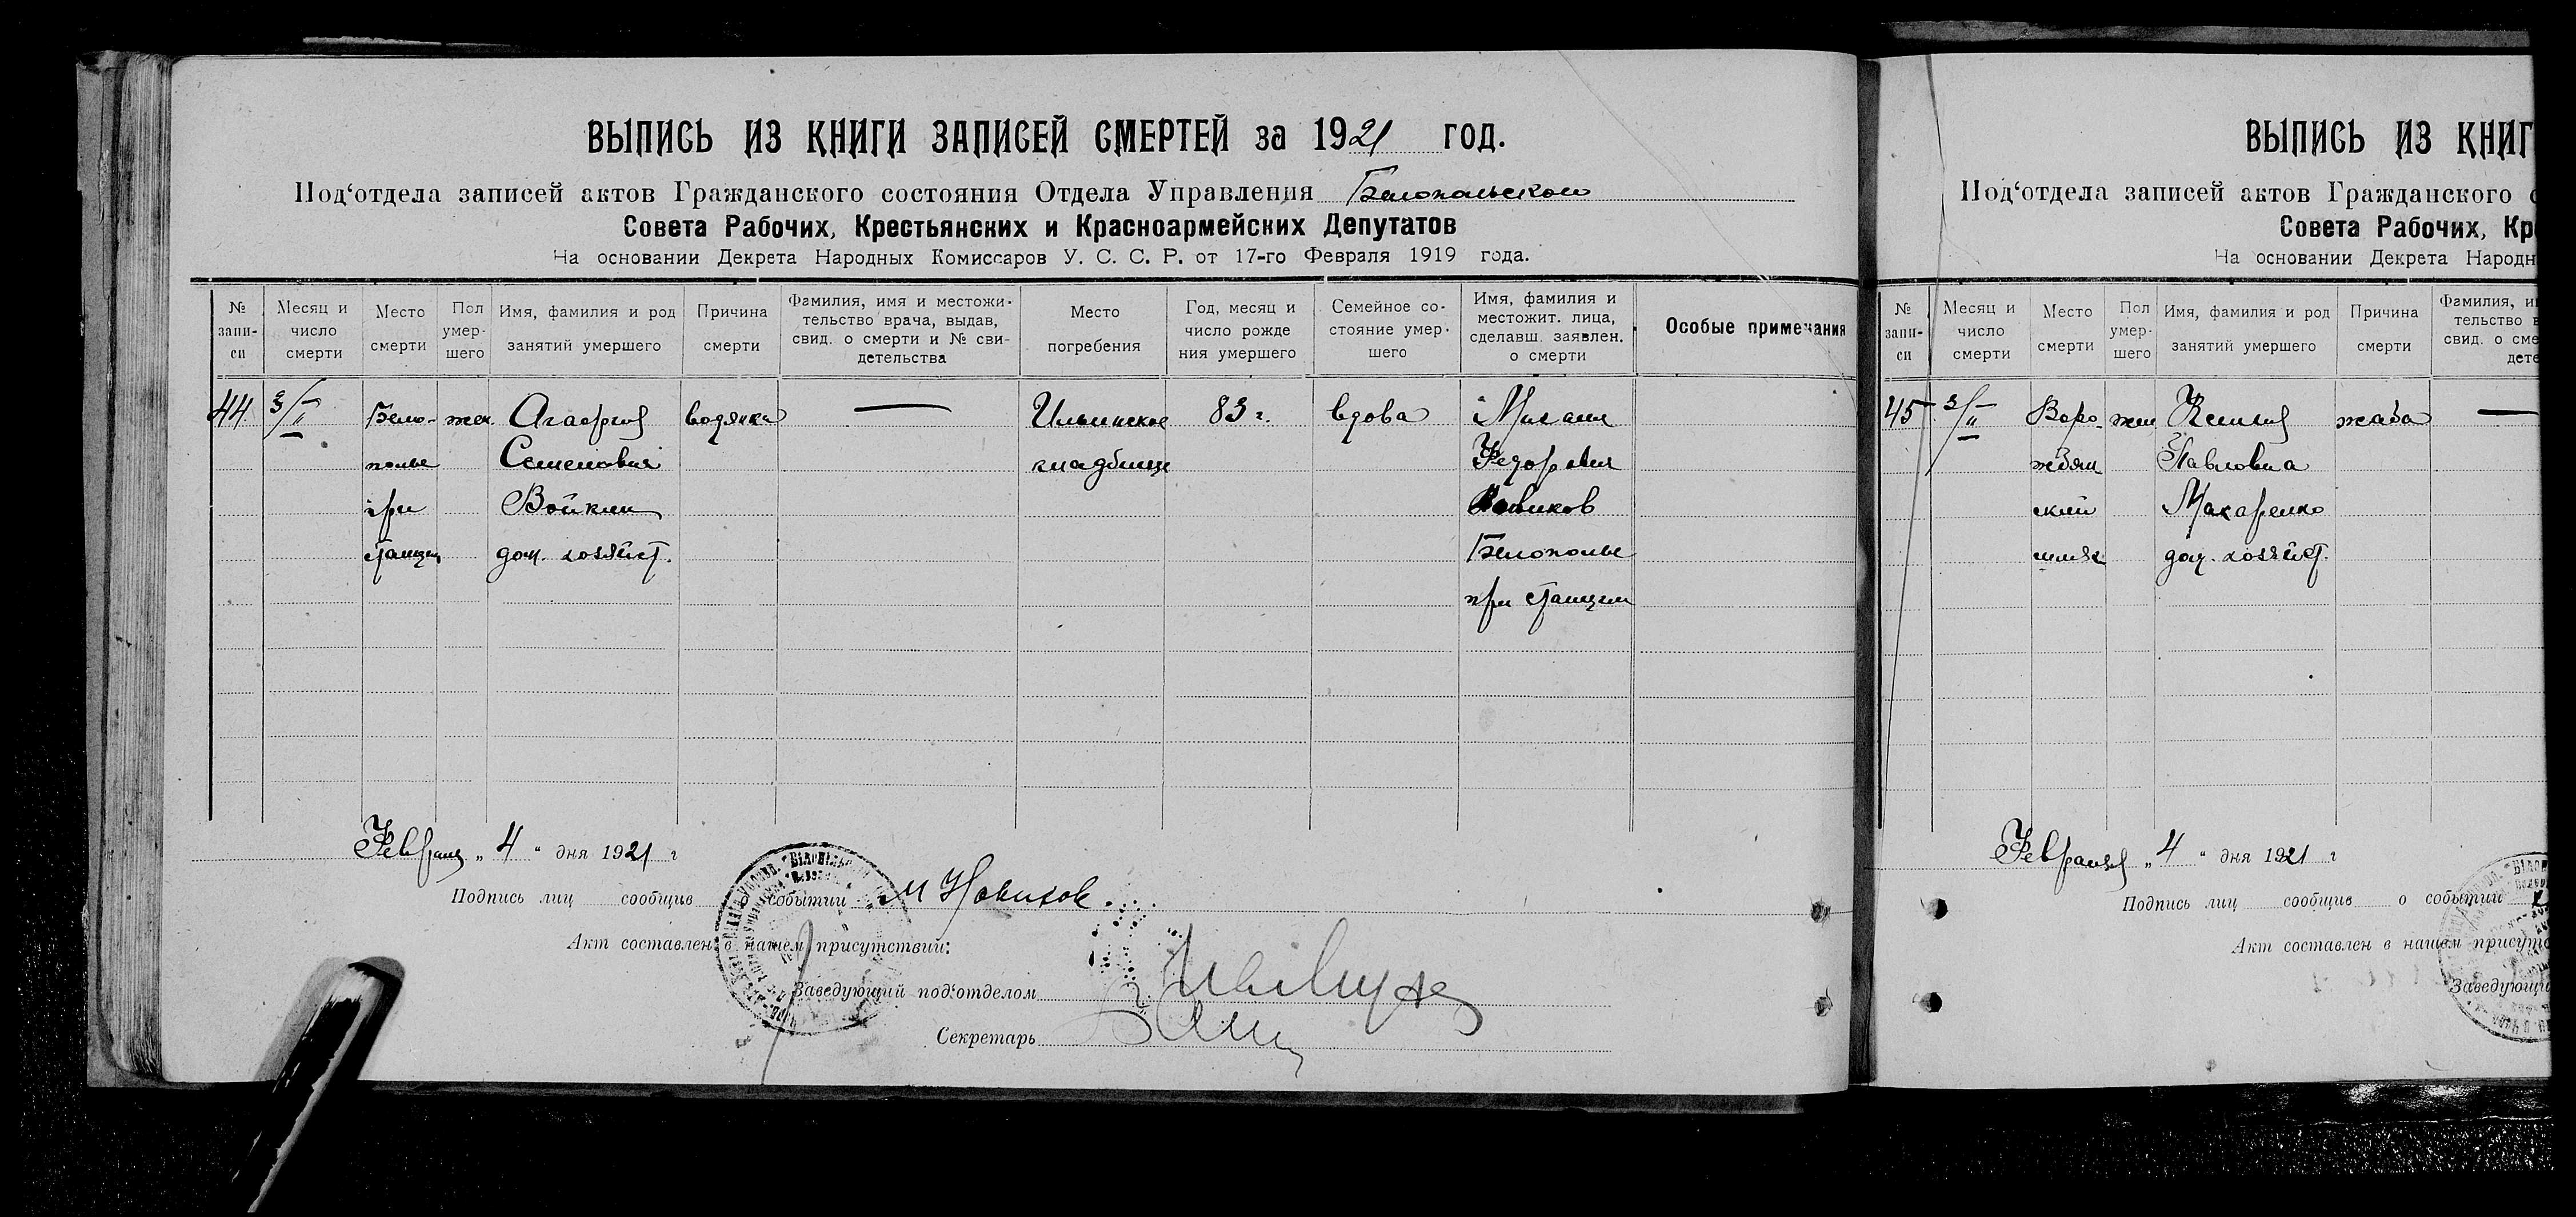 ВЫПИСЬ ИЗ КНИГИ ЗАПИСЕЙ СМЕРТЕЙ за 1921 год.
Под‘отдела записей актов Гражданского состояния Отдела Управления Белопольского
Совета Рабочих, Крестьянских и Красноармейских Депутатов
На основании Декрета Народных Комиссаров У. С. С. Р. от 17-го Февраля 1919 года.
№ запи- си
Месяц и число смерти
Место смерти
Пол умер- шего
Имя, фамилия и род занятий умершего
Причина смерти
Фамилия, имя и местожи- тельство врача, выдав, свид. о смерти и № сви- детельства
Место погребения
Год, месяц и число рожде ния умершего
Семейное со- стояние умер- шего
Имя, фамилия и местожит. лица, сделавш. заявлен. о смерти
Особые примечания
44 3/II Бело- жен. Агафия водянка — Ильинское 83 г. вдова Михаил
полье Семеновна кладбище Федорович
при Новиков
станции дом. хозяйст. Белополье
при станции
Февраля „ 4 “ дня 1921 г
Подпись лиц сообщив о событии М Новиков.
Акт составлен в нашем присутствии:
Заведующий под‘отделом
Секретарь
ВЫПИСЬ ИЗ КНИГ
Под‘отдела записей актов Гражданского с
Совета Рабочих, Кре
На основании Декрета Народн
№ запи- си
Месяц и число смерти
Место смерти
Пол умер- шего
Имя, фамилия и род занятий умершего
Причина смерти
Фамилия, и тельство в свид. о сме дете
45 3/II Воро- жен жаба —
жбян Павловна
ский Макаренко
шлях дом. хозяйст.
Февраля „ 4 “ дня 1921 г
Подпись лиц сообщив о событии
Акт составлен в нашем присутс
Заведующи